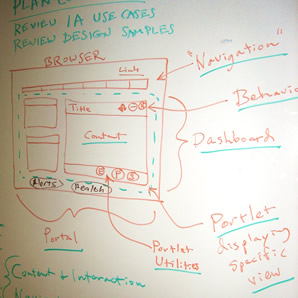 PLAN
REVIEW IA USE CASES
REVIEW DESIGN SAMPLES
BROWSER
Link
"Navigation"
Title
Behavio
Content
Dashboard
E P S
Alerts
Portlet
displaying
specific
view
Portal
Portlet
Utilities
Content + Interaction